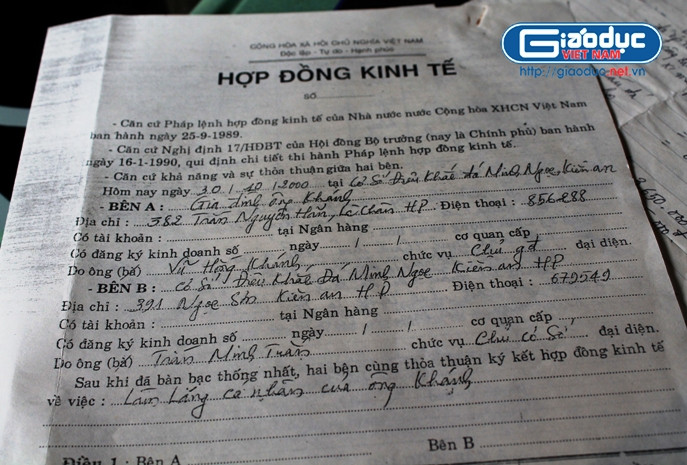 Giáo dục
VIỆT NAM
http://giaoduc.net.vn
CỘNG HÒA XÃ HỘI CHỦ NGHĨA VIỆT NAM
Độc lập - Tự do - Hạnh phúc
HỢP ĐỒNG KINH TẾ
SỐ
- Căn cứ Pháp lệnh hợp đồng kinh tế của Nhà nước nước Cộng hòa XHCN Việt Nam
ban hành ngày 25-9-1989.
- Căn cứ Nghị định 17/HĐBT của Hội đồng Bộ trưởng (nay là Chính phủ) ban hành
ngày 16-1-1990, qui định chi tiết thi hành Pháp lệnh hợp đồng kinh tế.
- Căn cứ khả năng và sự thỏa thuận giữa hai bên.
Hôm nay ngày 30 / 10 / 2000 tại Cơ Sở Điêu Khắc đá Minh Ngọc, Kiến an
- BÊN A : Gia đình ông Khánh
Địa chỉ : 382 Trần Nguyên Hãn, Lê Chân HP Điện thoại : 856288
Có tài khoản : tại Ngân hàng
Có đăng ký kinh doanh số ngày / / cơ quan cấp
Do ông (bà) Vũ Hồng Khánh chức vụ Chủ gđ đại diện.
- BÊN B : Cơ Sở Điêu Khắc Đá Minh Ngọc Kiến an HP
Địa chỉ : 391 Ngọc Sơn Kiến an HP Điện thoại : 679549
Có tài khoản : tại Ngân hàng
Có đăng ký kinh doanh số ngày / / cơ quan cấp
Do ông (bà) Trần Minh chức vụ Chủ cơ Sở đại diện.
Sau khi đã bàn bạc thống nhất, hai bên cùng thỏa thuận ký kết hợp đồng kinh tế
về việc : Làm Lăng cá nhân của ông Khánh
Bên B
Điều 1 : Bên A